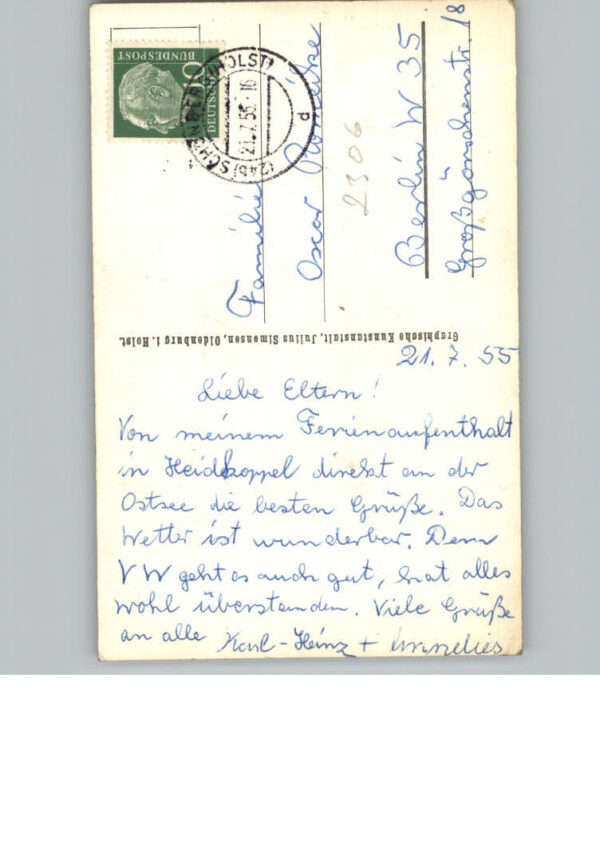 DEUTSCHE
BUNDESPOST
(24b) SCHÖNBERG (HOLST)
21.7.55.-16
d
Familie
Oscar
2306
Berlin W 35
Großgörschenstr. 18
Graphische Kunstanstalt, Julius Simonsen, Oldenburg i. Holst.
21.7.55
Liebe Eltern!
Von meinem Ferienaufenthalt
in Heidkoppel direkt an der
Ostsee die besten Grüße. Das
Wetter ist wunderbar. Dem
VW geht es auch gut, hat alles
wohl überstanden. Viele Grüße
an alle Karl-Heinz + Annelies